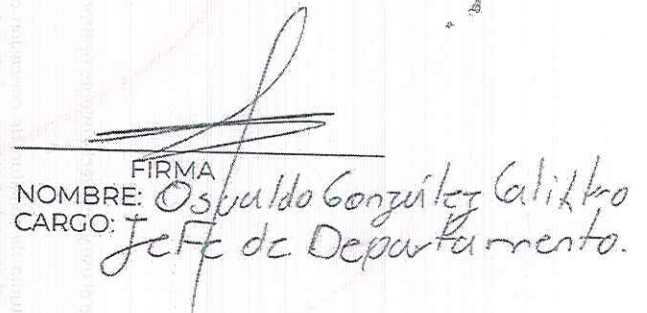 FIRMA
NOMBRE: Osvaldo González
CARGO: Jefe de Departamento.